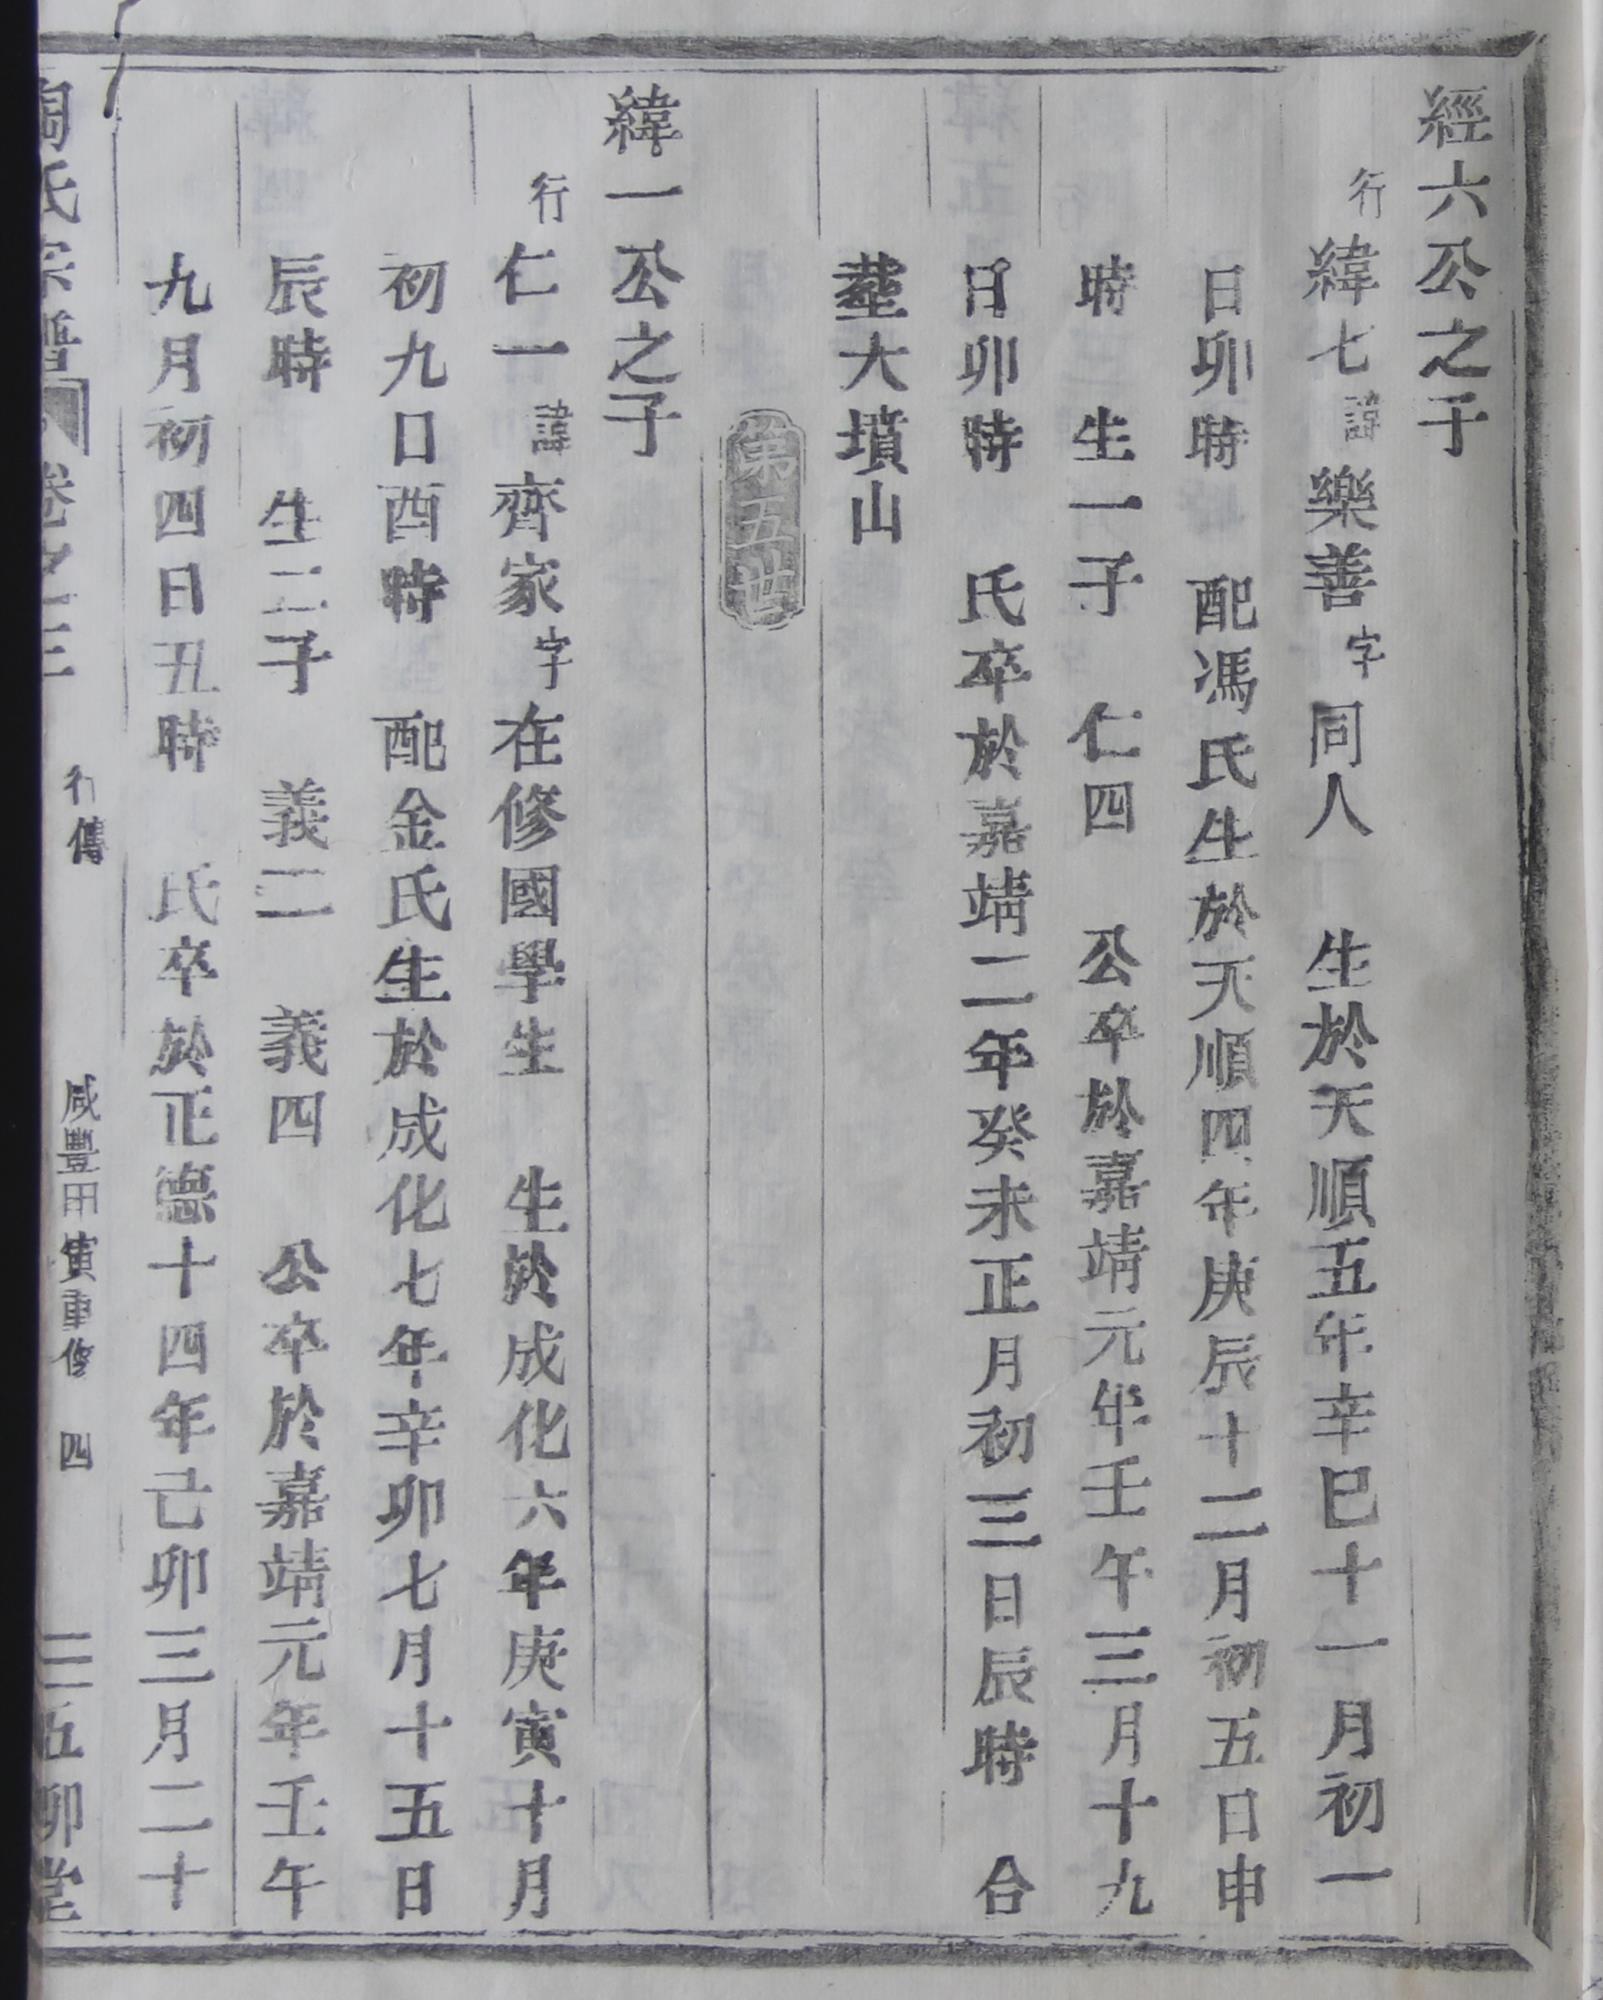 經六公之子
行緯七諱樂善字同人 生於天順五年辛巳十一月初一
日卯時 配馮氏生於天順四年庚辰十二月初五日申
時 生一子 仁四 公卒於嘉靖元年壬午三月十九
日卯時 氏卒於嘉靖二年癸未正月初三日辰時 合
塟大墳山
第五世
緯一公之子
行仁一諱齊家字在修國學生 生於成化六年庚寅十月
初九日酉時 配金氏生於成化七年辛卯七月十五日
辰時 生二子 義二 義四 公卒於嘉靖元年壬午
九月初四日丑時 氏卒於正德十四年己卯三月二十
陶氏宗譜 卷之三 行傳 咸豐甲寅重修 四 五柳堂